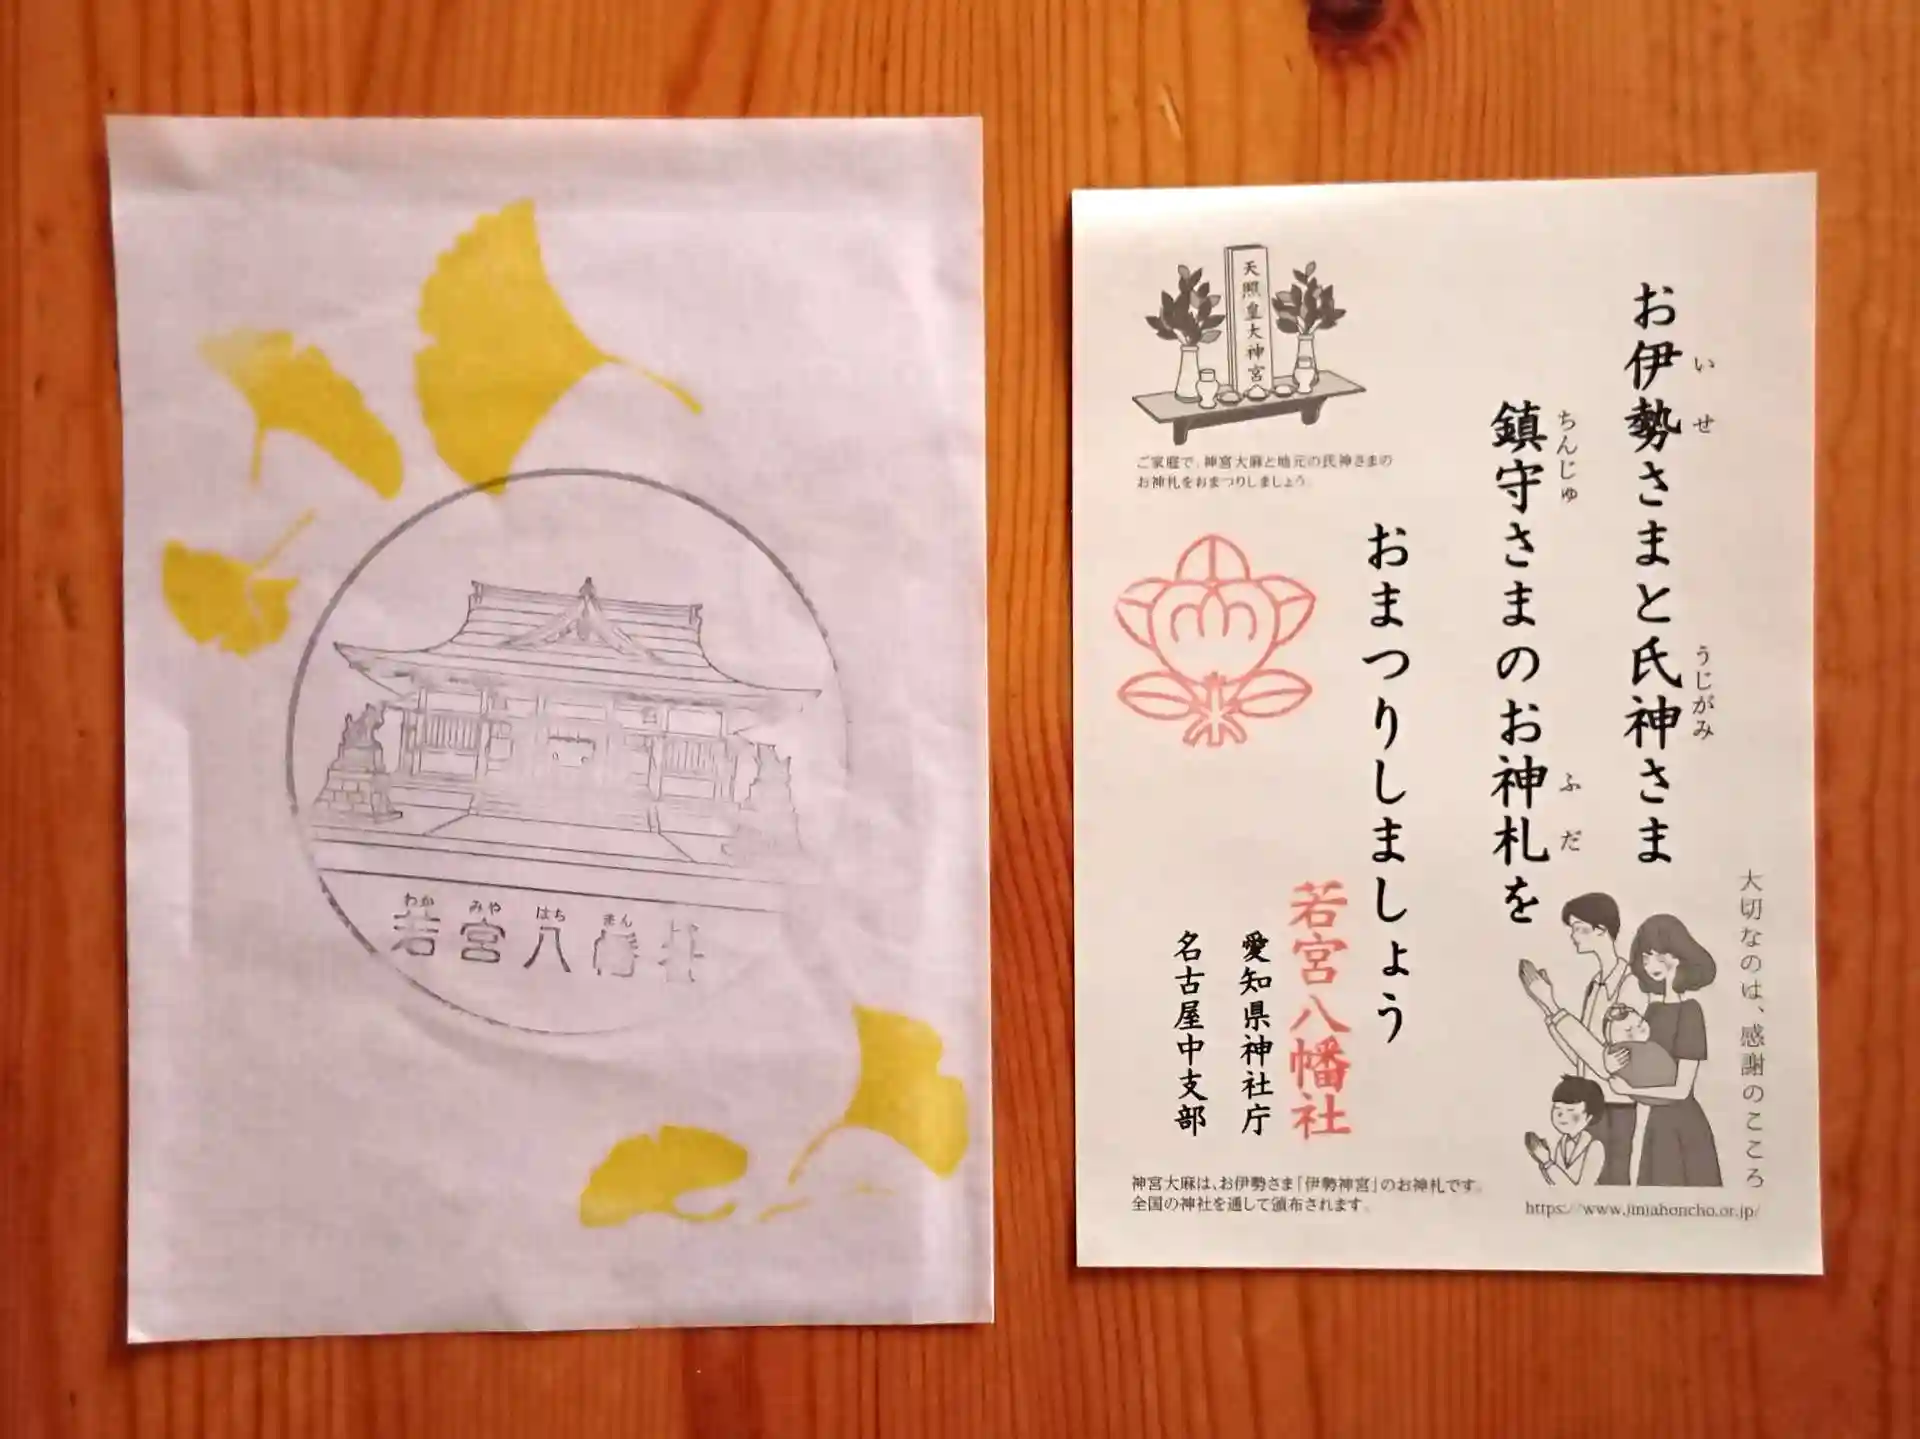 わか みや はち まん
若宮八幡社
天照皇大神宮
ご家庭で、神宮大麻と地元の氏神さまの
お神札をおまつりしましょう。
い せ うじがみ
お伊勢さまと氏神さま
ちんじゅ ふだ
鎮守さまのお神札を
おまつりしましょう
若宮八幡社
愛知県神社庁
名古屋中支部
大切なのは、感謝のこころ
神宮大麻は、お伊勢さま「伊勢神宮」のお神札です。
全国の神社を通して頒布されます。
https://www.jinjahoncho.or.jp/